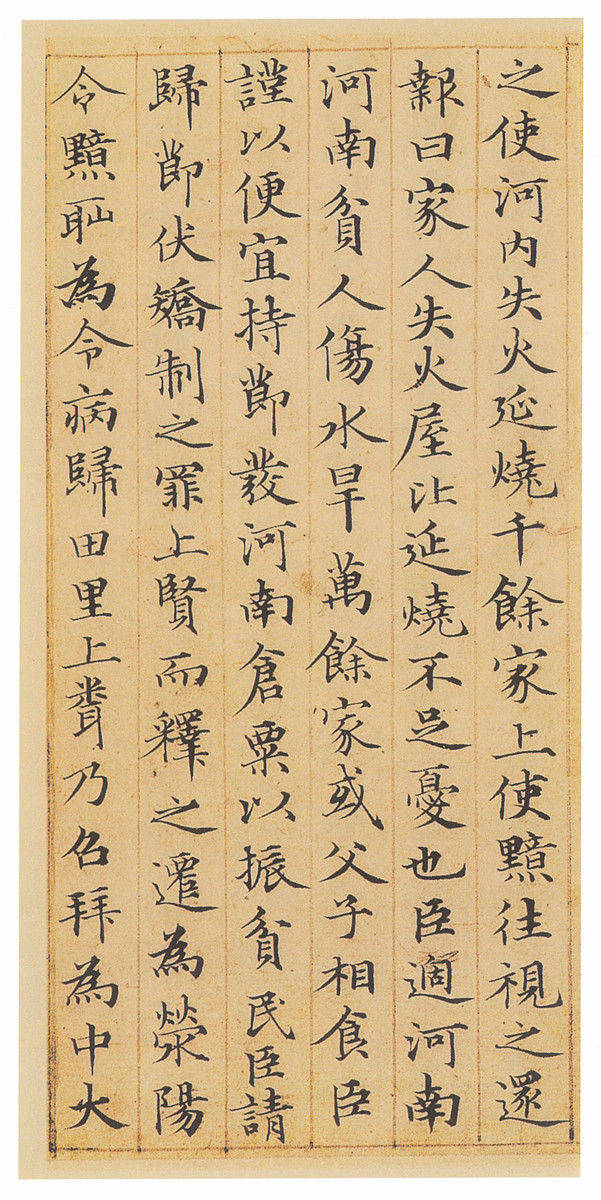 之使河內失火延燒千餘家上使黯往視之還
報曰家人失火屋比延燒不足憂也臣過河南
河南貧人傷水旱萬餘家或父子相食臣
謹以便宜持節發河南倉粟以振貧民臣請
歸節伏矯制之罪上賢而釋之遷為滎陽
令黯耻為令病歸田里上聞乃召拜為中大